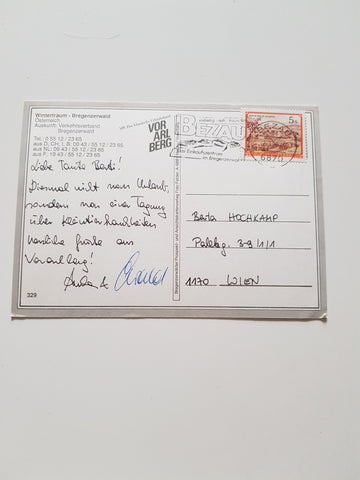 Wintertraum - Bregenzerwald
Österreich
Auskunft: Verkehrsverband
Bregenzerwald
Tel.: 0 55 12 / 23 65
aus D, CH, I, B: 00 43 / 55 12 / 23 65
aus NL: 09-43 / 55 12 / 23 65
aus F: 19-43 / 55 12 / 23 65
VOR
ARL
BERG
BEZAU
Das Einkaufszentrum
im Bregenzerwald
6870
5
Liebe Tante Berti!
Diesmal nicht vom Urlaub,
sondern von einer Tagung
über Kleintierkrankheiten
herzliche Grüße aus
Vorarlberg!
Berta HOCHKAMP
Palffyg. 3-9/1/1
1170 WIEN
329